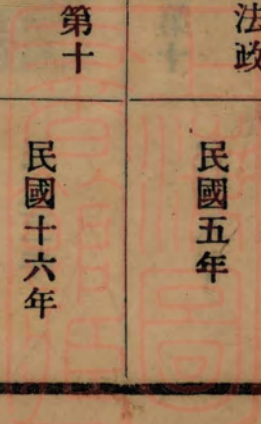 法政
民國五年
第十
民國十六年